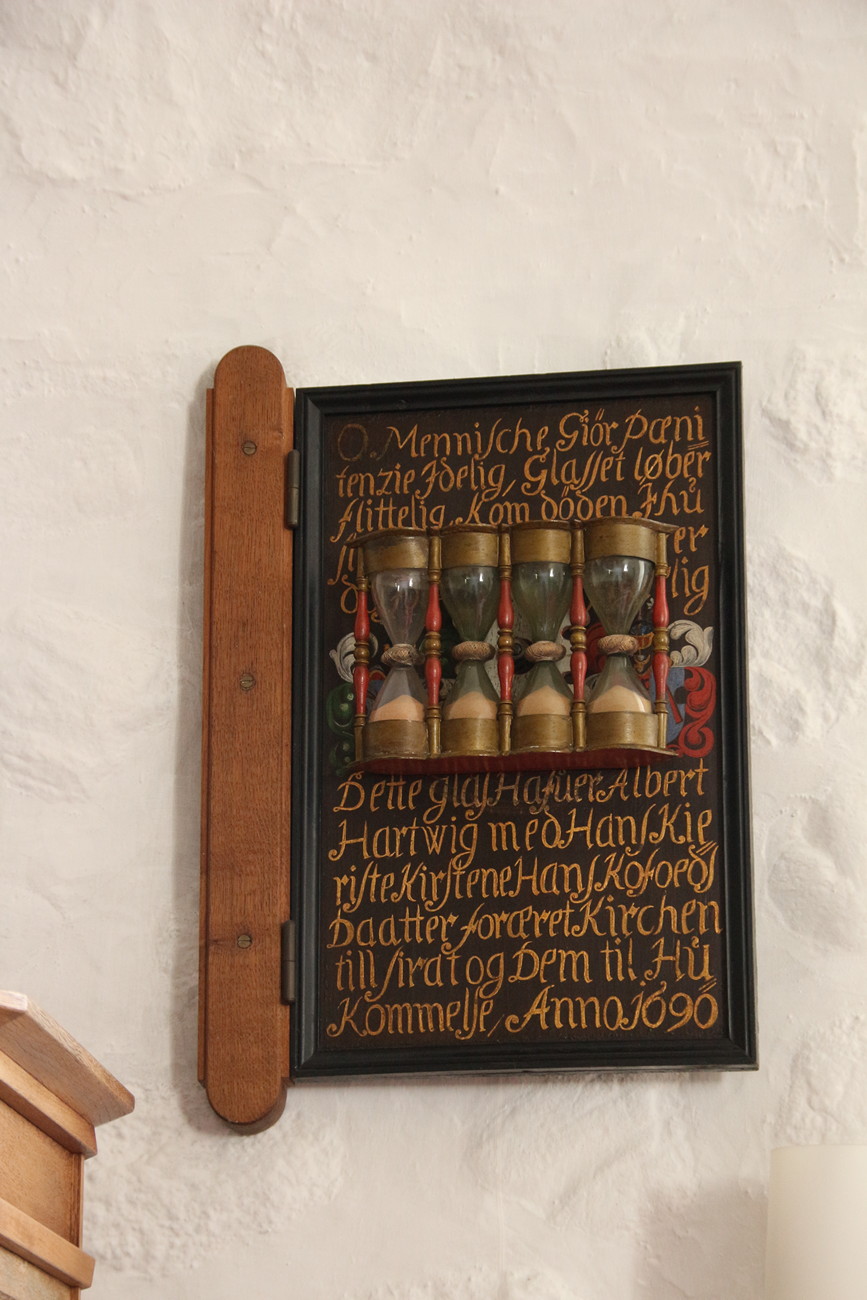 O. Menniſche Giör Pœni
tenzie Jdelig, Glaſſet løber
flittelig, Kom döden J hŭ
er
lig
Dette glaſ Hafuer Albert
Hartwig med Hanſ Kie
riſte Kirſtene Hanſ Kofoedſ
Daatter foræret Kirchen
till ſirat og Dem til Hŭ
Kommelſe, Anno 1690